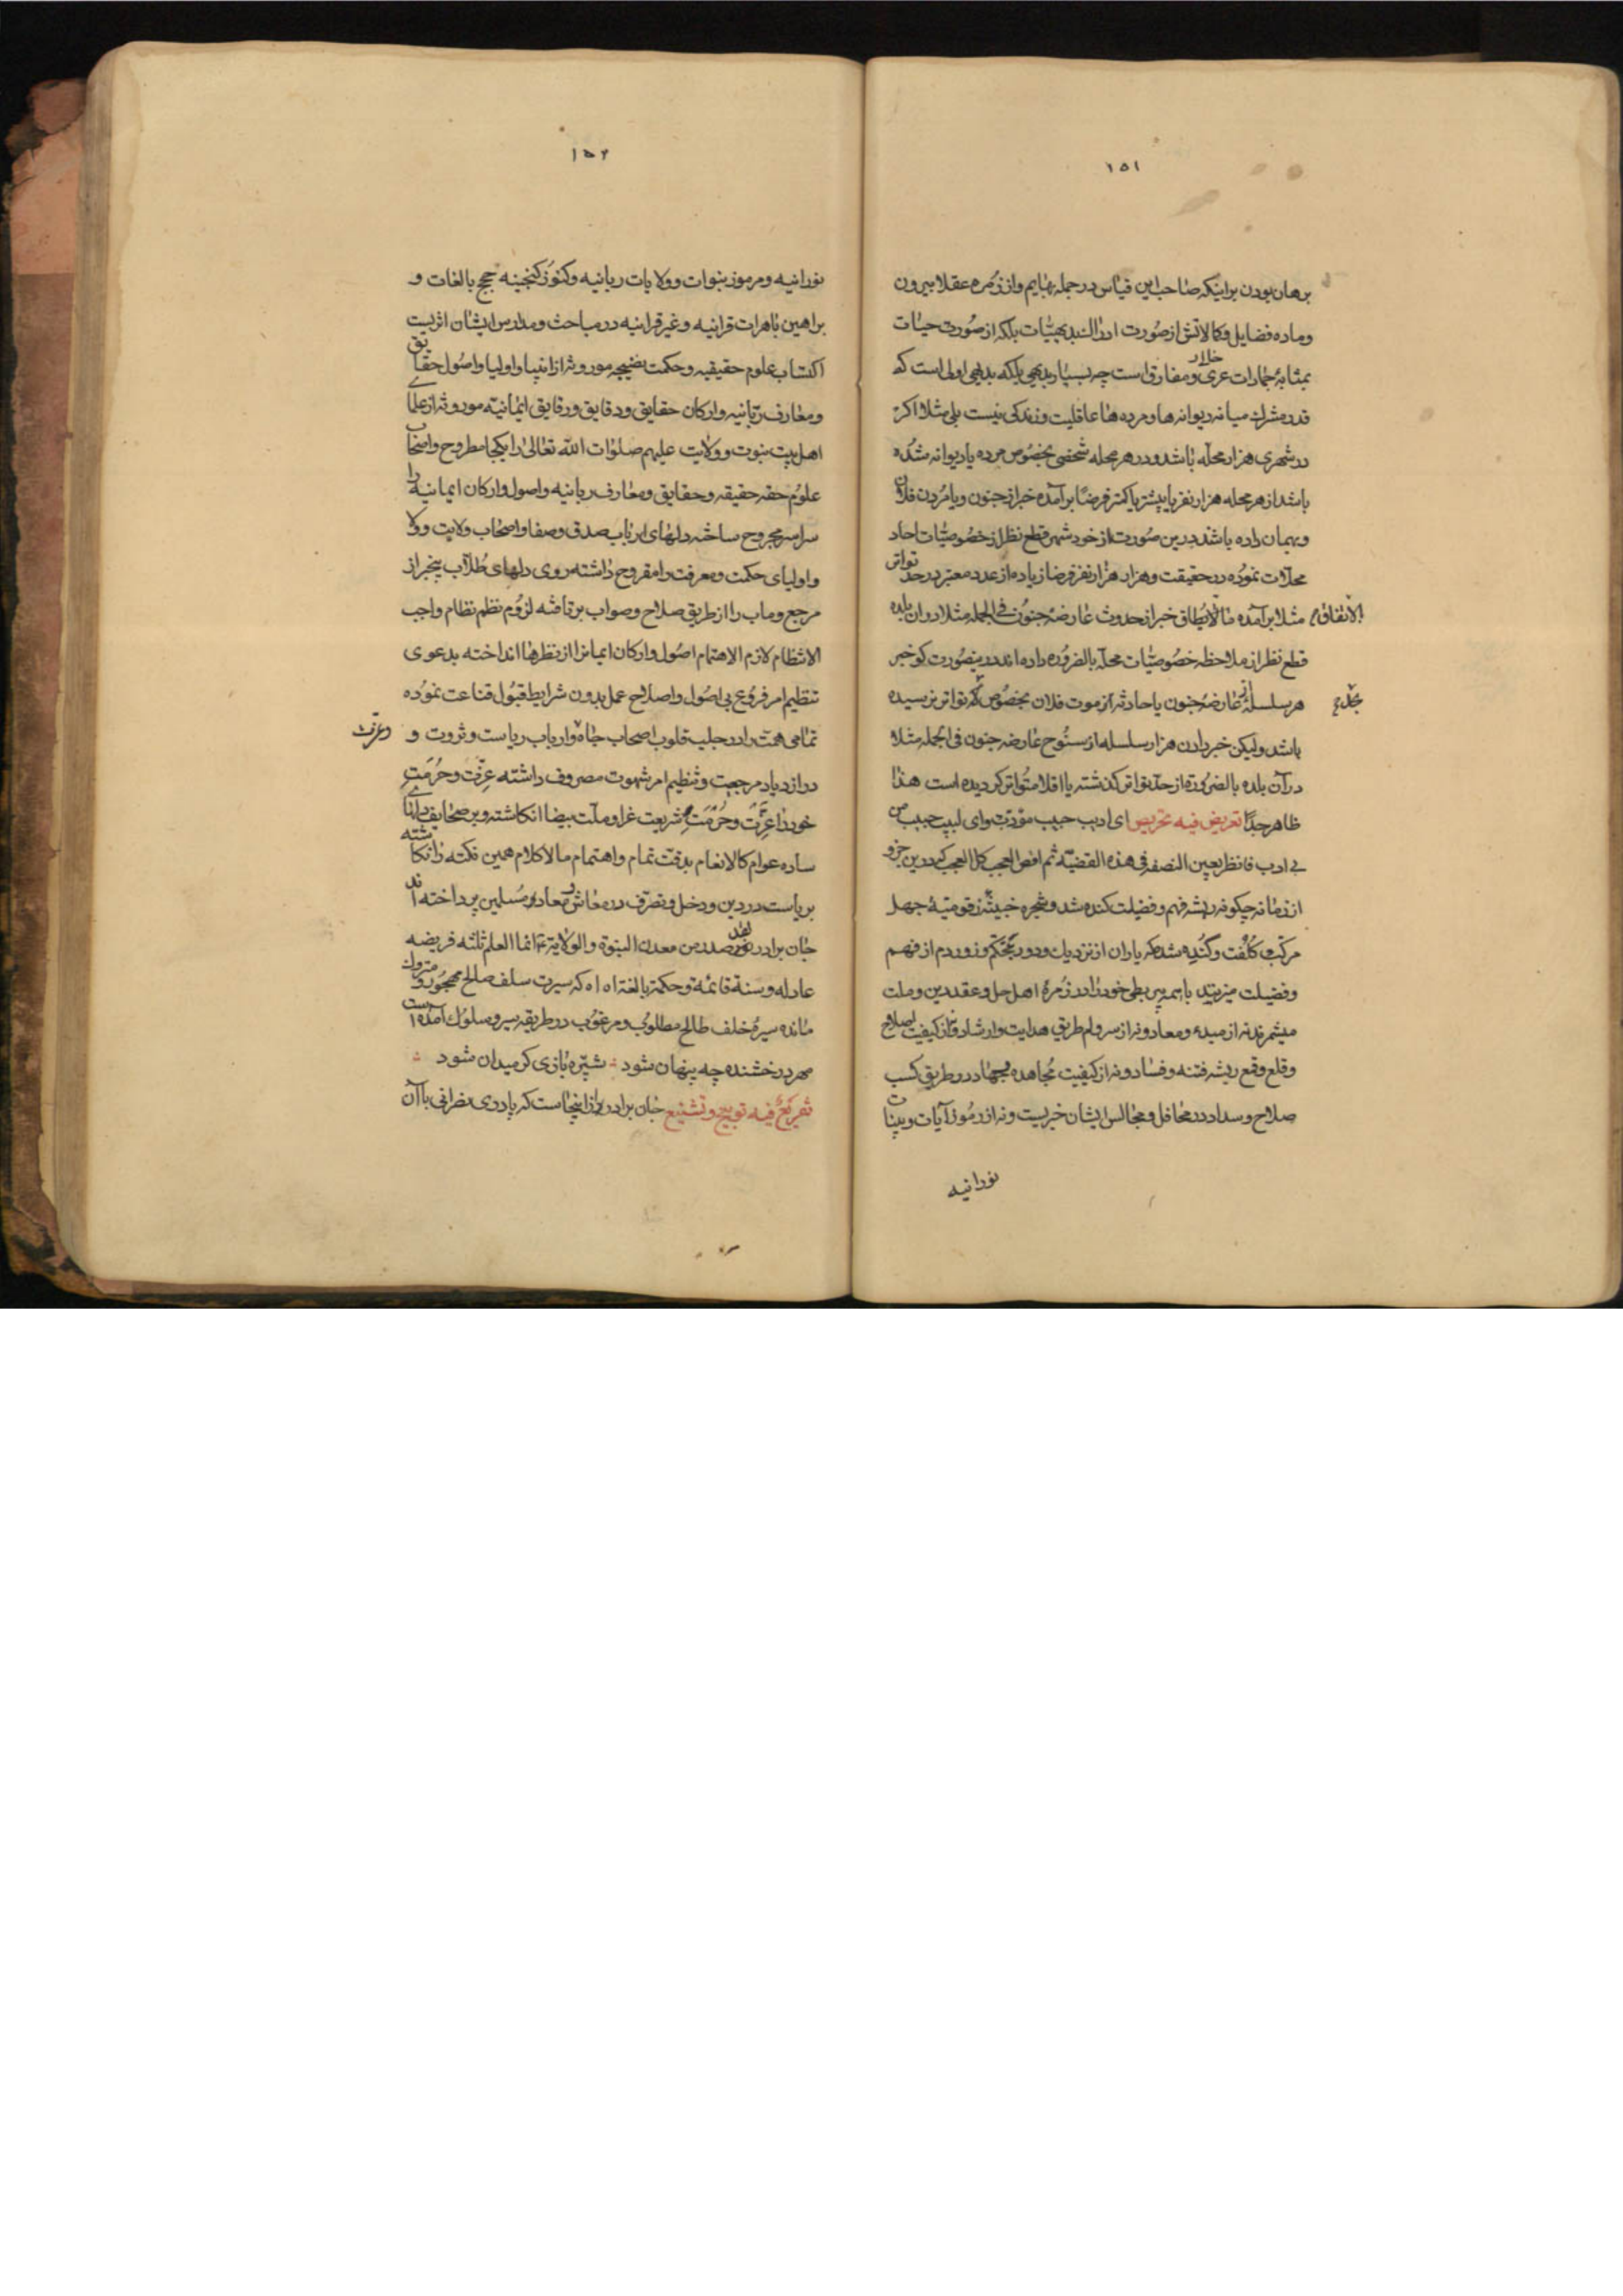 ۱۵۱
برهان بودن براینکه صاحب این قیاس در جمله بهایم و از زمره عقلا بیرون
و ماده فضایل و کمالاتش از صورت ادراك بدیهیّات بلکه از صورت حیات
بمثابهٔ جمادات عری و مفارق است چه بسیار بدیهی بلکه بدیهی اولی است که
قدر مشترك میانه دیوانه‌ها و مرده‌ها عاقلیت و زندگی نیست بلی مثلا اکر
در شهری هزار محلّه باشد و در هر محله شخصی بخصُوص مرده یا دیوانه شدُه
باشد از هر محله هزار نفر یا بیشتر یا کمتر فرضًا برآمده خبر از جنون و یا مُردن فلان
و بهمان داده باشد درین صورت از خود شهر قطع نظر از خصُوصیّات احاد
محلّات نمُوده در حقیقت و هزار هزار نفر فرضا زیاده از عدد معتبر در حدّ تواتر
مثلا برآمده خبر از حدوث عارضهٔ جنوُن فی الجمله مثلا در ان بلده
الاتفاق
قطع نظر از ملاحظه خصُوصیّات محلّه بالضروُره داده‌اند درینصُورت کو خبر
هر سلسلهٔ از عارضهٔ جنون یا حادثه از موت فلان بخصُوص بتواتر نرسیده
باشد ولیکن خبر دادن هزار سلسله از سنُوح عارضهٔ جنون فی الجمله مثلا
در آن بلده بالضرُوره از حدّ تواتر کذشته یا اقلا متُواتر کردیده است هذا
ظاهر جدًا تعریض فیه تحریص ای ادیب حبیب مؤدّب و ای لبیب حبیب من
بی ادب فانظر بعین النصفه فی هذه القضیّه ثم افض العجب کل العجب که درین جزو
از زمانه چکونه ریشه فهم و فضیلت کنده شد و شجره خبیثه زقومیّهٔ جهل
مرکّب کُلُفت و کُنده شد که یاران از نزدیك و دور بتحکّم و زور دم از فهم
و فضیلت میزنند باسم بی ربطی خود را در زمرهٔ اهل حل و عقد دین و ملت
میشمرند نه از مبدء و معاد و نه از سر وام طریق هدایت و ارشاد و نه از کیفیت اصلاح
و قلع و قمع ریشه فتنه و فساد و نه از کیفیت مُجاهده و جهاد در طریق کسب
صلاح و سداد در محافل و مجالس ایشان خبریست و نه از رمُوز آیات و بینات
نورانیه
۱۵۲
نورانیه و رموز نبوات و ولایات ربانیه و کنوُز کنجینه حجج بالغات و
براهین باهرات قرانیه و غیر قرانیه در مباحث و مدارس ایشان اثریست
اکتساب علوم حقیقیه و حکمت نضیجه موروثه از انبیا و اولیا و اصُول حقایق
و معارف ربّانیه و ارکان حقایق و دقایق و رقایق ایمانیّه موروثه از علمای
اهل بیت نبوت و ولایت علیهم صلوات الله تعالی را یکجا مطروح و اصحاب
علوُم حقه حقیقیه و حقایق و معارف ربانیه و اصول و ارکان ایمانیه را
سراسر مجروح ساخته دلهای ارباب صدق و صفا و اصحاب ولایت و ولا
و اولیای حکمت و معرفت را مقروح داشته روی دلهای طُلّاب بیخبر از
مرجع و ماب را از طریق صلاح و صواب برتافته لزوُم نظم نظام واجب
الانتظام لازم الاهتمام اصُول و ارکان ایمانرا از نظرها انداخته بدعوی
تنظیم امر فروُع بی اصُول و اصلاح عمل بدون شرایط قبُول قناعت نموُده
تمامی همّت را در جلب قلوب اصحاب جاه و ارباب ریاست و ثروت و
و عزت
در ازدیاد مرجعیت و تنظیم امر شهوت مصروف داشته عزّت و حرُمتِ
خود را عزّت و حرُمت شریعت غرا و ملّت بیضا انکاشته و بر صحایف دلهای
ساده عوام کالانعام بدقت تمام و اهتمام مالاکلام همین نکته را نکاشته
بریاست در دین و دخل و تصرّف در معاش و معاد مُسلمین پرداخته‌اند
جان برادر لقد صدر من معدن النبوة و الولایة انما العلم ثلثه فریضه
عادله و سنة قائمة و حکمة بالغة اه اه که سیرت سلف صالح مهجوُر و متروك
مانده سیرهٔ خلف طالح مطلوُب و مرغوُب در طریقه سیر و سلوُك آمده است
مهر درخشنده چه پنهان شود شبپره بازی کر میدان شود
تفریعٌ فیه توبیخ و تشنیع جان برادر از اینجاست که پادری نصرانی با آن